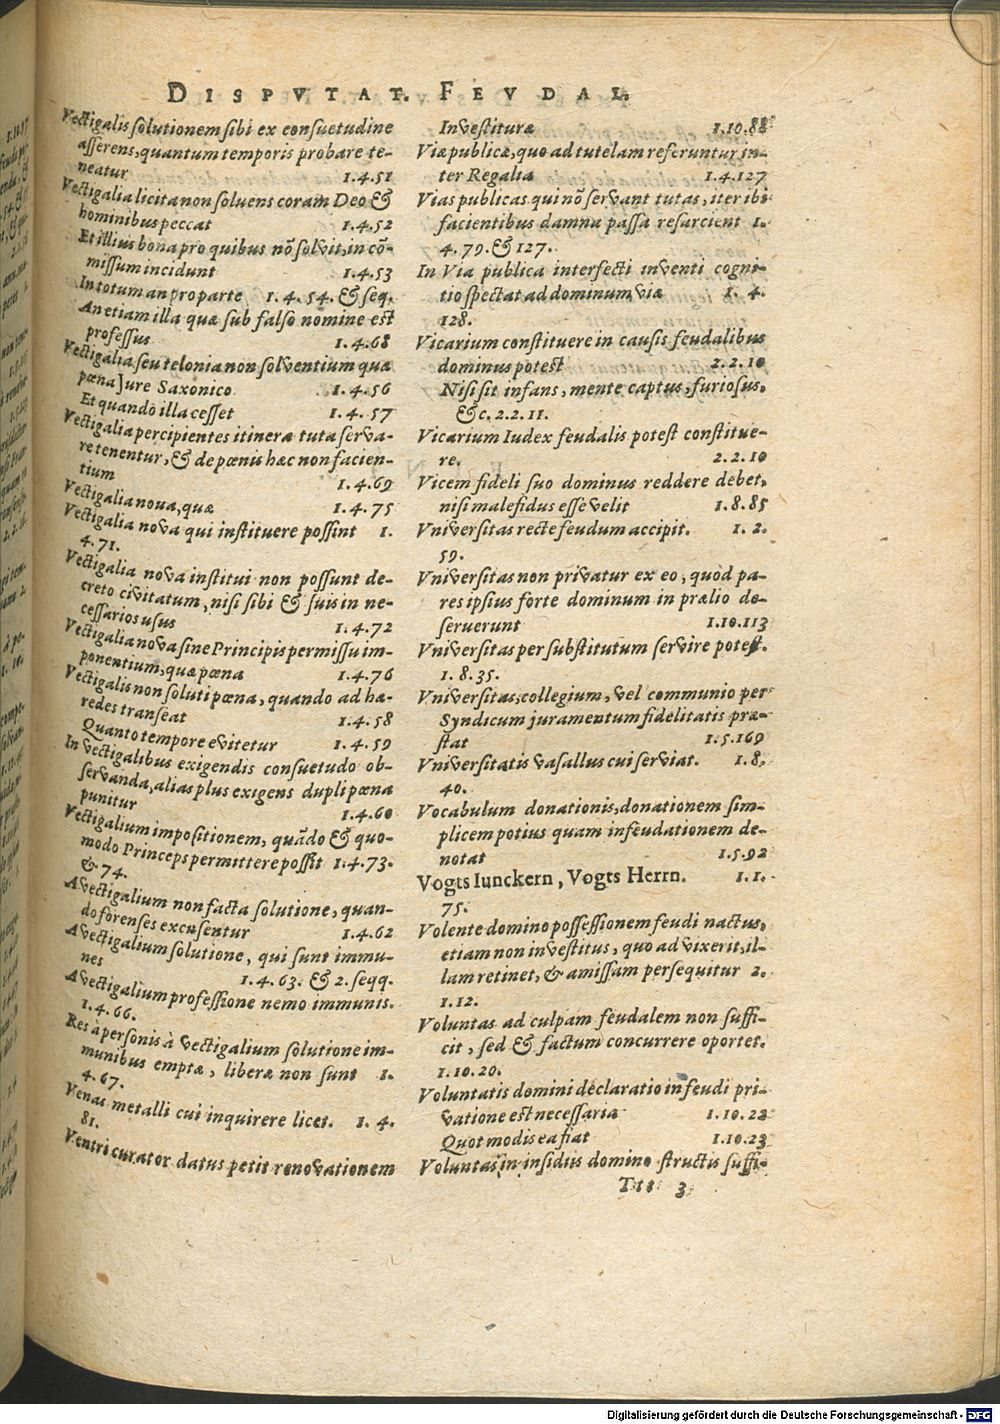 DISPVTAT. FEVDAL.
Vectigalis solutionem sibi ex consuetudine
asserens, quantum temporis probare te-
neatur 1.4.51
Vectigalia licita non soluens coram Deo &
hominibus peccat 1.4.52
Et illius bona pro quibus nõ solvit, in cõ-
missum incidunt 1.4.53
In totum an pro parte 1.4.54. & seq.
An etiam illa quæ sub falso nomine est
professus 1.4.68
Vectigalia seu telonia non solventium quæ
pœna Jure Saxonico 1.4.56
Et quando illa cesset 1.4.57
Vectigalia percipientes itinera tuta serva-
re tenentur, & de pœnis hæc non facien-
tium 1.4.69
Vectigalia noua, quæ 1.4.75
Vectigalia nova qui instituere possint 1.
4.71.
Vectigalia nova institui non possunt de-
creto civitatum, nisi sibi & suis in ne-
cessarios usus 1.4.72
Vectigalia nova sine Principis permissu im-
ponentium, quæ pœna 1.4.76
Vectigalis non soluti pœna, quando ad hæ-
redes transeat 1.4.58
Quanto tempore evitetur 1.4.59
In vectigalibus exigendis consuetudo ob-
servanda, alias plus exigens dupli pœna
punitur 1.4.60
Vectigalium impositionem, quãdo & quo-
modo Princeps permittere possit 1.4.73.
& 74.
A vectigalium non facta solutione, quan-
do forenses excusentur 1.4.62
A vectigalium solutione, qui sunt immu-
nes 1.4.63. & 2. seqq.
A vectigalium professione nemo immunis.
1.4.66.
Res à personis à vectigalium solutione im-
munibus emptæ, liberæ non sunt 1.
4.67.
Venas metalli cui inquirere licet. 1.4.
81.
Ventri curator datus petit renovationem
Investituræ 1.10.88
Viæ publicæ, quo ad tutelam referuntur in-
ter Regalia 1.4.127
Vias publicas qui nõ servant tutas, iter ibi
facientibus damna passa resarcient 1.
4.79. & 127.
In Via publica interfecti inventi cogni-
tio spectat ad dominum viæ 1.4.
128.
Vicarium constituere in causis feudalibus
dominus potest 2.2.10
Nisi sit infans, mente captus, furiosus,
&c. 2.2.11.
Vicarium Iudex feudalis potest constitue-
re. 2.2.10
Vicem fideli suo dominus reddere debet,
nisi malefidus esse velit 1.8.85
Vniversitas recte feudum accipit. 1.2.
59.
Vniversitas non privatur ex eo, quòd pa-
res ipsius forte dominum in prælio de-
seruerunt 1.10.113
Vniversitas per substitutum servire potest.
1.8.35.
Vniversitas, collegium, vel communio per
Syndicum juramentum fidelitatis præ-
stat 1.5.169
Vniversitatis vasallus cui serviat. 1.8.
40.
Vocabulum donationis, donationem sim-
plicem potius quam infeudationem de-
notat 1.5.92
Vogts Iunckern, Vogts Herrn. 1.1.
75.
Volente domino possessionem feudi nactus,
etiam non investitus, quo ad vixerit, il-
lam retinet, & amissam persequitur 2.
1.12.
Voluntas ad culpam feudalem non suffi-
cit, sed & factum concurrere oportet.
1.10.20.
Voluntatis domini declaratio in feudi pri-
vatione est necessaria 1.10.22
Quot modis ea fiat 1.10.23
Voluntas, in insidiis domino structis suffi-
Ttt 3
Digitalisierung gefördert durch die Deutsche Forschungsgemeinschaft - DFG